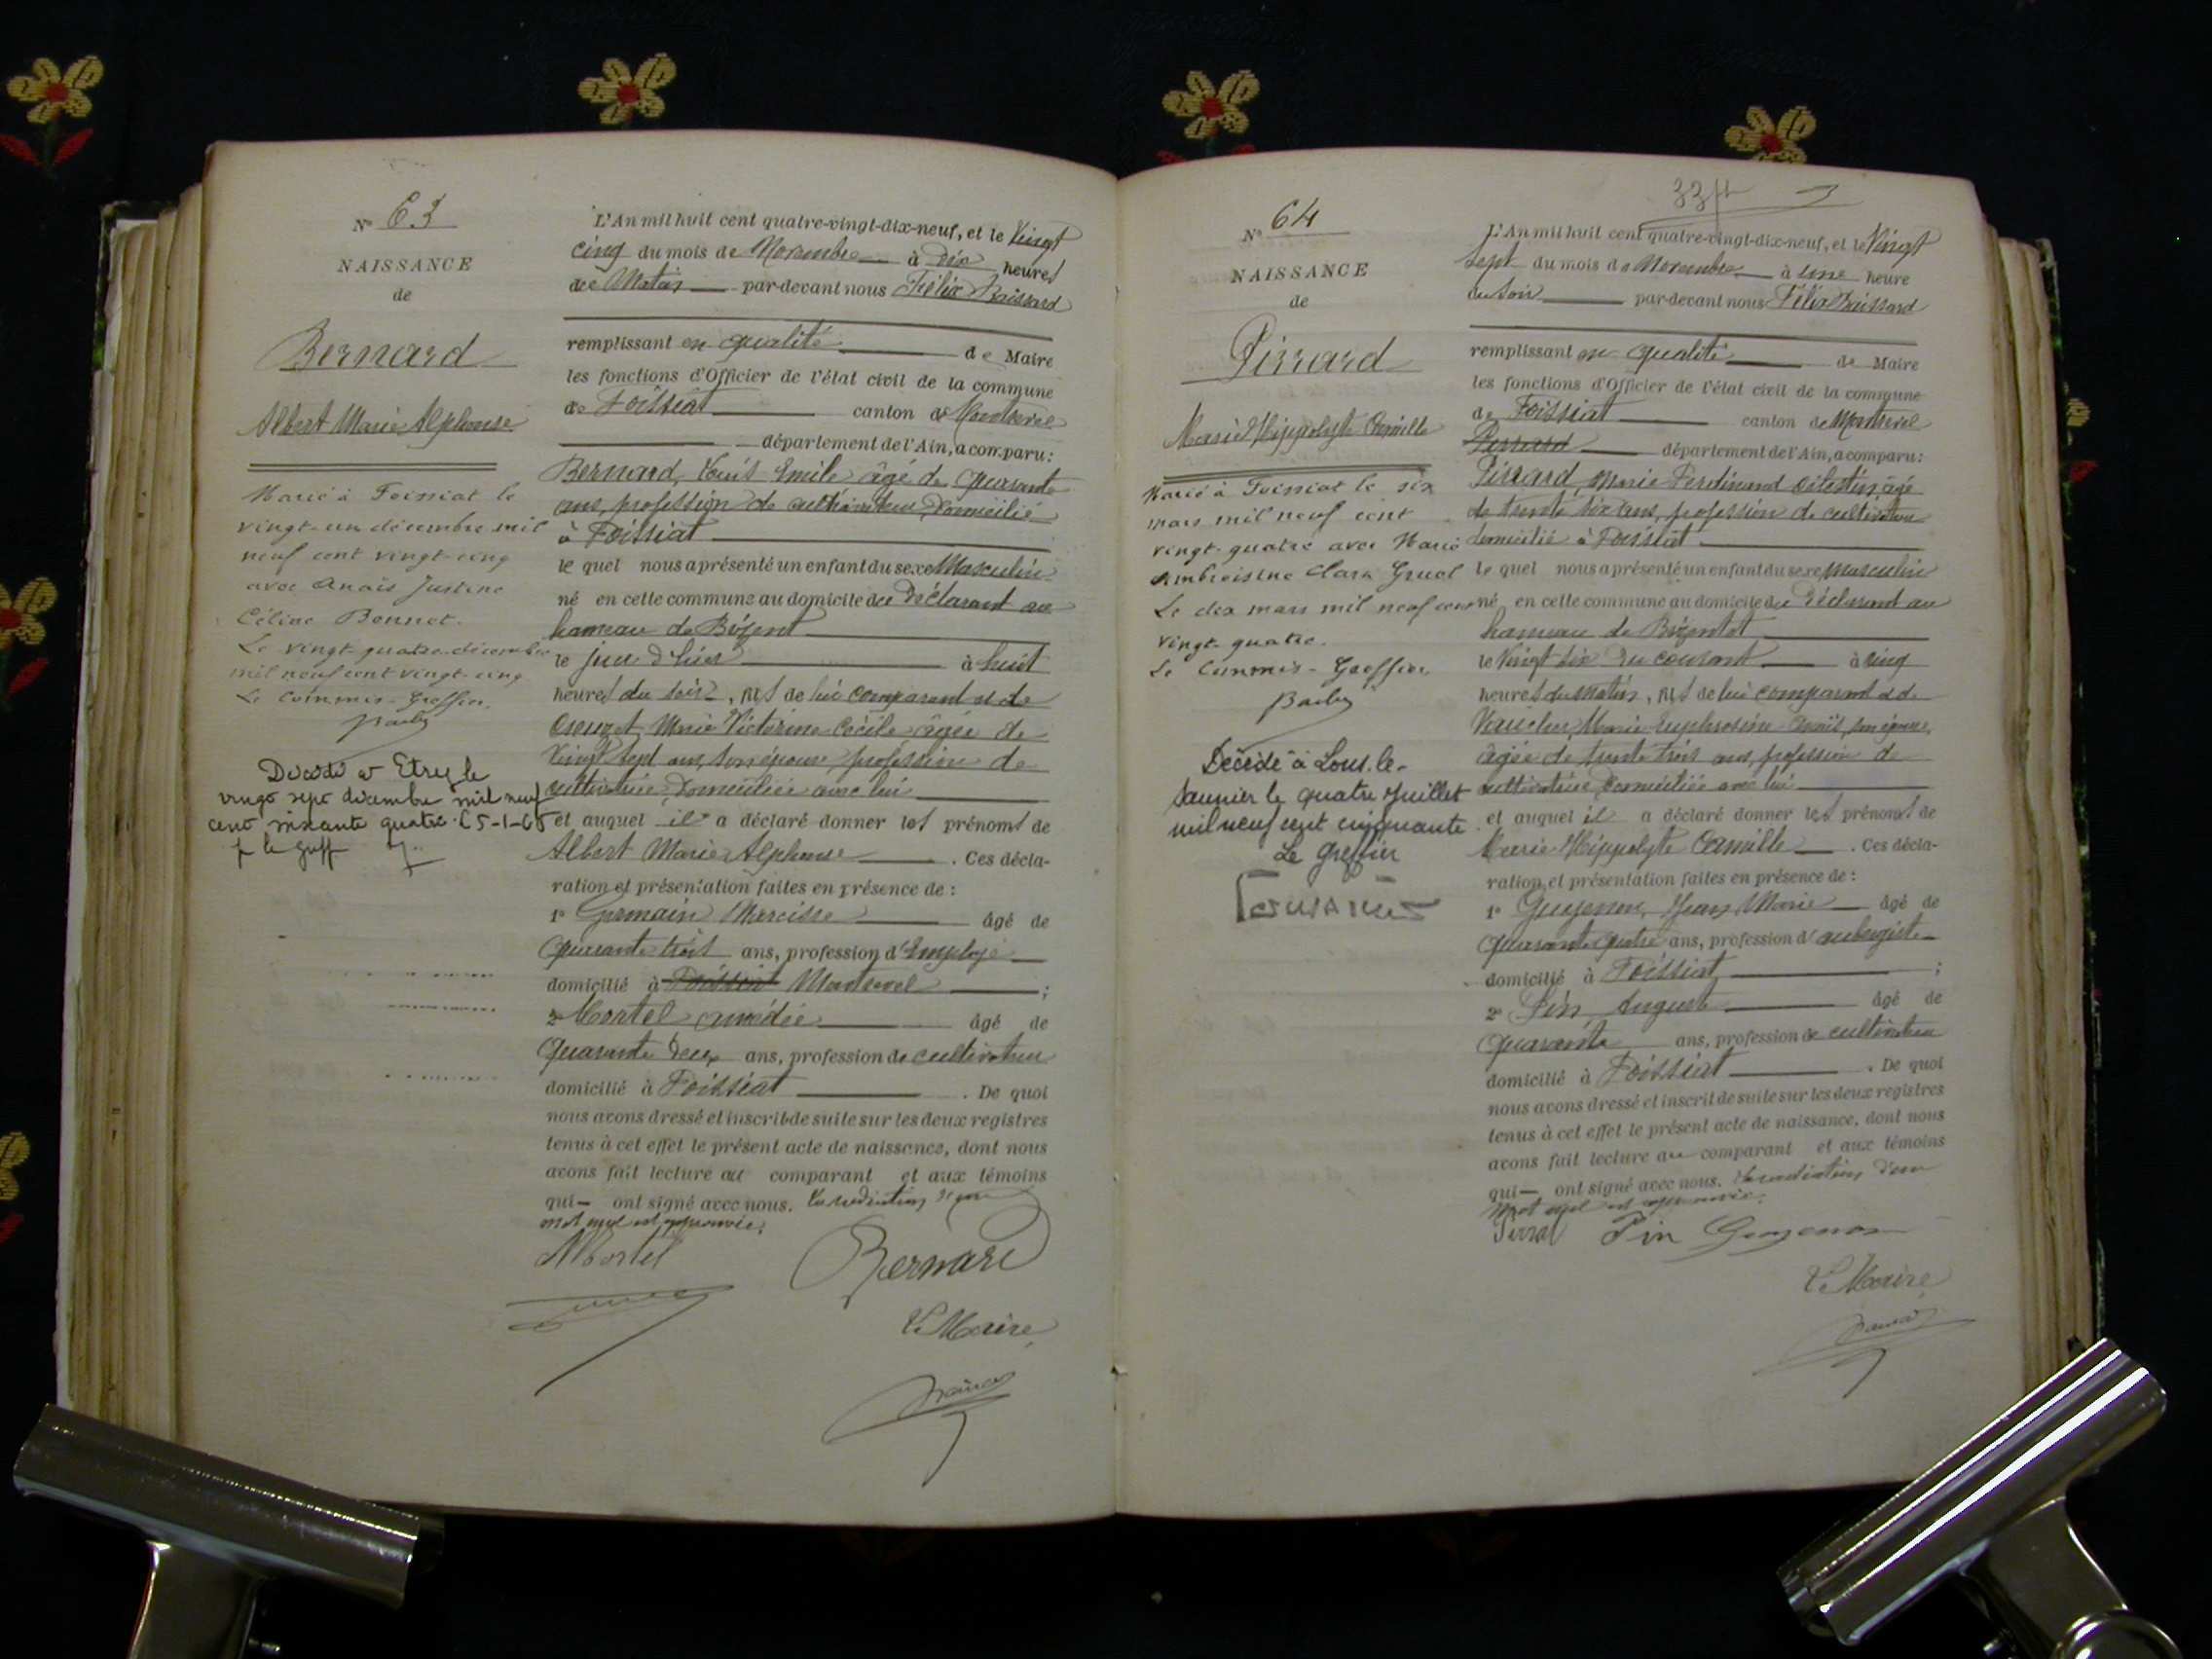 N° 63
NAISSANCE
de
Bernard
Albert Marie Alphonse
Marié à Foissiat le
vingt-un décembre mil
neuf cent vingt-cinq
avec Anaïs Justine
Céline Bonnet.
Le vingt quatre décembre
mil neuf cent vingt-cinq
Le Commis-Greffier,
Décédé à Etrez le
vingt sept décembre mil neuf
cent soixante quatre. 5-1-65
L'An mil huit cent quatre-vingt-dix-neuf, et le Vingt
cinq du mois de Novembre à dix heures
du Matin par-devant nous Félix Brissard
remplissant en qualité de Maire
les fonctions d'Officier de l'état civil de la commune
de Foissiat canton de Montrevel
département de l'Ain, a comparu:
Bernard, Louis Emile âgé de quarante
ans, profession de cultivateur, domicilié
à Foissiat
le quel nous a présenté un enfant du sexe Masculin
né en cette commune au domicile du Déclarant au
hameau de
le jour d'hier à huit
heures du soir, fils de lui comparant et de
Marie Victorine Cécile âgée de
Vingt sept ans, son épouse, profession de
cultivatrice, domiciliée avec lui
et auquel il a déclaré donner les prénoms de
Albert Marie Alphonse. Ces décla-
ration et présentation faites en présence de:
1° Germain Narcisse âgé de
Quarante trois ans, profession d'Employé
domicilié à Foissiat Montrevel;
2° Mortel amédée âgé de
Quarante deux ans, profession de cultivateur
domicilié à Foissiat. De quoi
nous avons dressé et inscrit de suite sur les deux registres
tenus à cet effet le présent acte de naissance, dont nous
avons fait lecture au comparant et aux témoins
qui ont signé avec nous. La radiation d'un
mot nul est approuvée.
AMortel Bernard
Le Maire,
N° 64
NAISSANCE
de
Pirrard
Marie Hippolyte Camille
Marié à Foissiat le six
mars mil neuf cent
vingt-quatre avec Marie
Ambroisine Clara Gruel
Le dix mars mil neuf cent
vingt-quatre.
Le Commis-Greffier
Décédé à Lons-le-
Saunier le quatre Juillet
mil neuf cent cinquante.
Le Greffier
L'An mil huit cent quatre-vingt-dix-neuf, et le Vingt
sept du mois de Novembre à une heure
du soir par-devant nous Félix Brissard
remplissant en qualité de Maire
les fonctions d'Officier de l'état civil de la commune
de Foissiat canton de Montrevel
département de l'Ain, a comparu:
Pirrard, Marie Ferdinand Célestin âgé
de trente six ans, profession de cultivateur
domicilié à Foissiat
le quel nous a présenté un enfant du sexe masculin
né en cette commune au domicile du Déclarant au
hameau de
le Vingt six du courant à cinq
heures du matin, fils de lui comparant et de
Marie Euphrosine Anaïs, son épouse,
âgée de trente trois ans, profession de
cultivatrice, domiciliée avec lui
et auquel il a déclaré donner les prénoms de
Marie Hippolyte Camille. Ces décla-
ration et présentation faites en présence de:
1° Guyenon, Jean Marie âgé de
Quarante quatre ans, profession d'aubergiste
domicilié à Foissiat;
2° Pin, Auguste âgé de
Quarante ans, profession de cultivateur
domicilié à Foissiat. De quoi
nous avons dressé et inscrit de suite sur les deux registres
tenus à cet effet le présent acte de naissance, dont nous
avons fait lecture au comparant et aux témoins
qui ont signé avec nous. La radiation d'un
mot nul est approuvée.
Pin Guyenon
Le Maire,